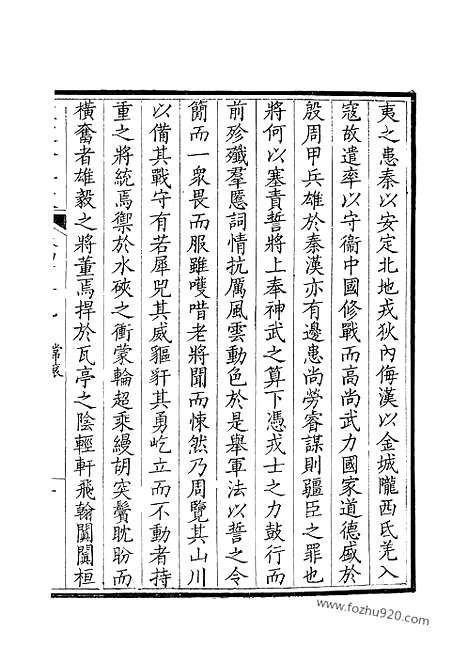 夷之患秦以安定北地戎狄內侮漢以金城隴西氐羌入
寇故遣率以守衞中國修戰而高尚武力國家道德盛於
殷周甲兵雄於秦漢亦有邊患尚勞睿謀則疆臣之罪也
將何以塞責誓將上奉神武之算下憑戎士之力鼓行而
前殄殲羣慝詞情抗厲風雲動色於是舉軍法以誓之令
簡而一衆畏而服雖嚄唶老將聞而悚然乃周覽其山川
以備其戰守有若犀兕其威貙豻其勇屹立而不動者持
重之將統焉禦於水硤之衝蒙輪超乘縵胡突鬢眈盻而
橫奮者雄毅之將董焉捍於瓦亭之陰輕軒飛翰闐闐桓
常袞
www.fozhu920.com